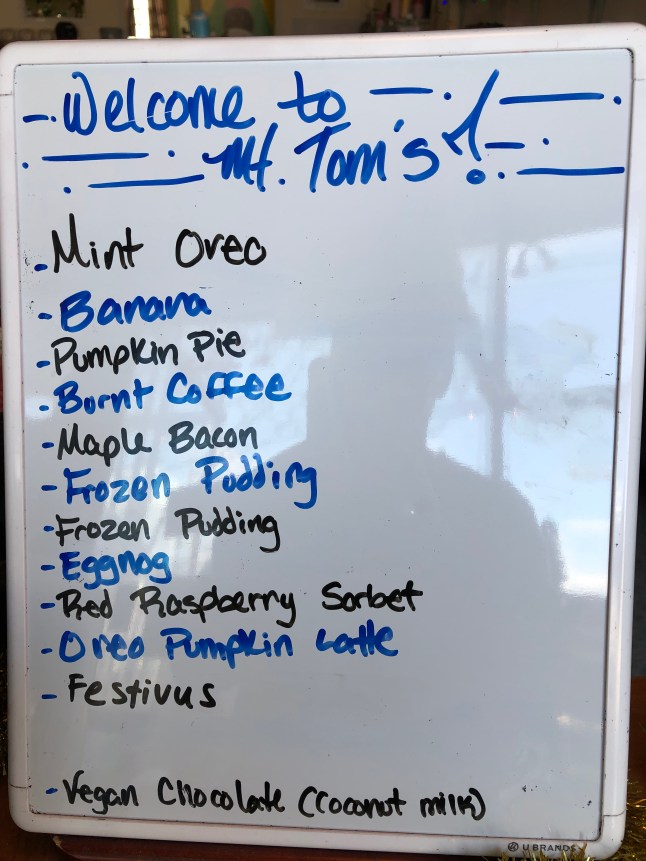 Welcome to
Mt. Tom's!
- Mint Oreo
- Banana
- Pumpkin Pie
- Burnt Coffee
- Maple Bacon
- Frozen Pudding
- Frozen Pudding
- Eggnog
- Red Raspberry Sorbet
- Oreo Pumpkin Latte
- Festivus
- Vegan Chocolate (coconut milk)
U BRANDS